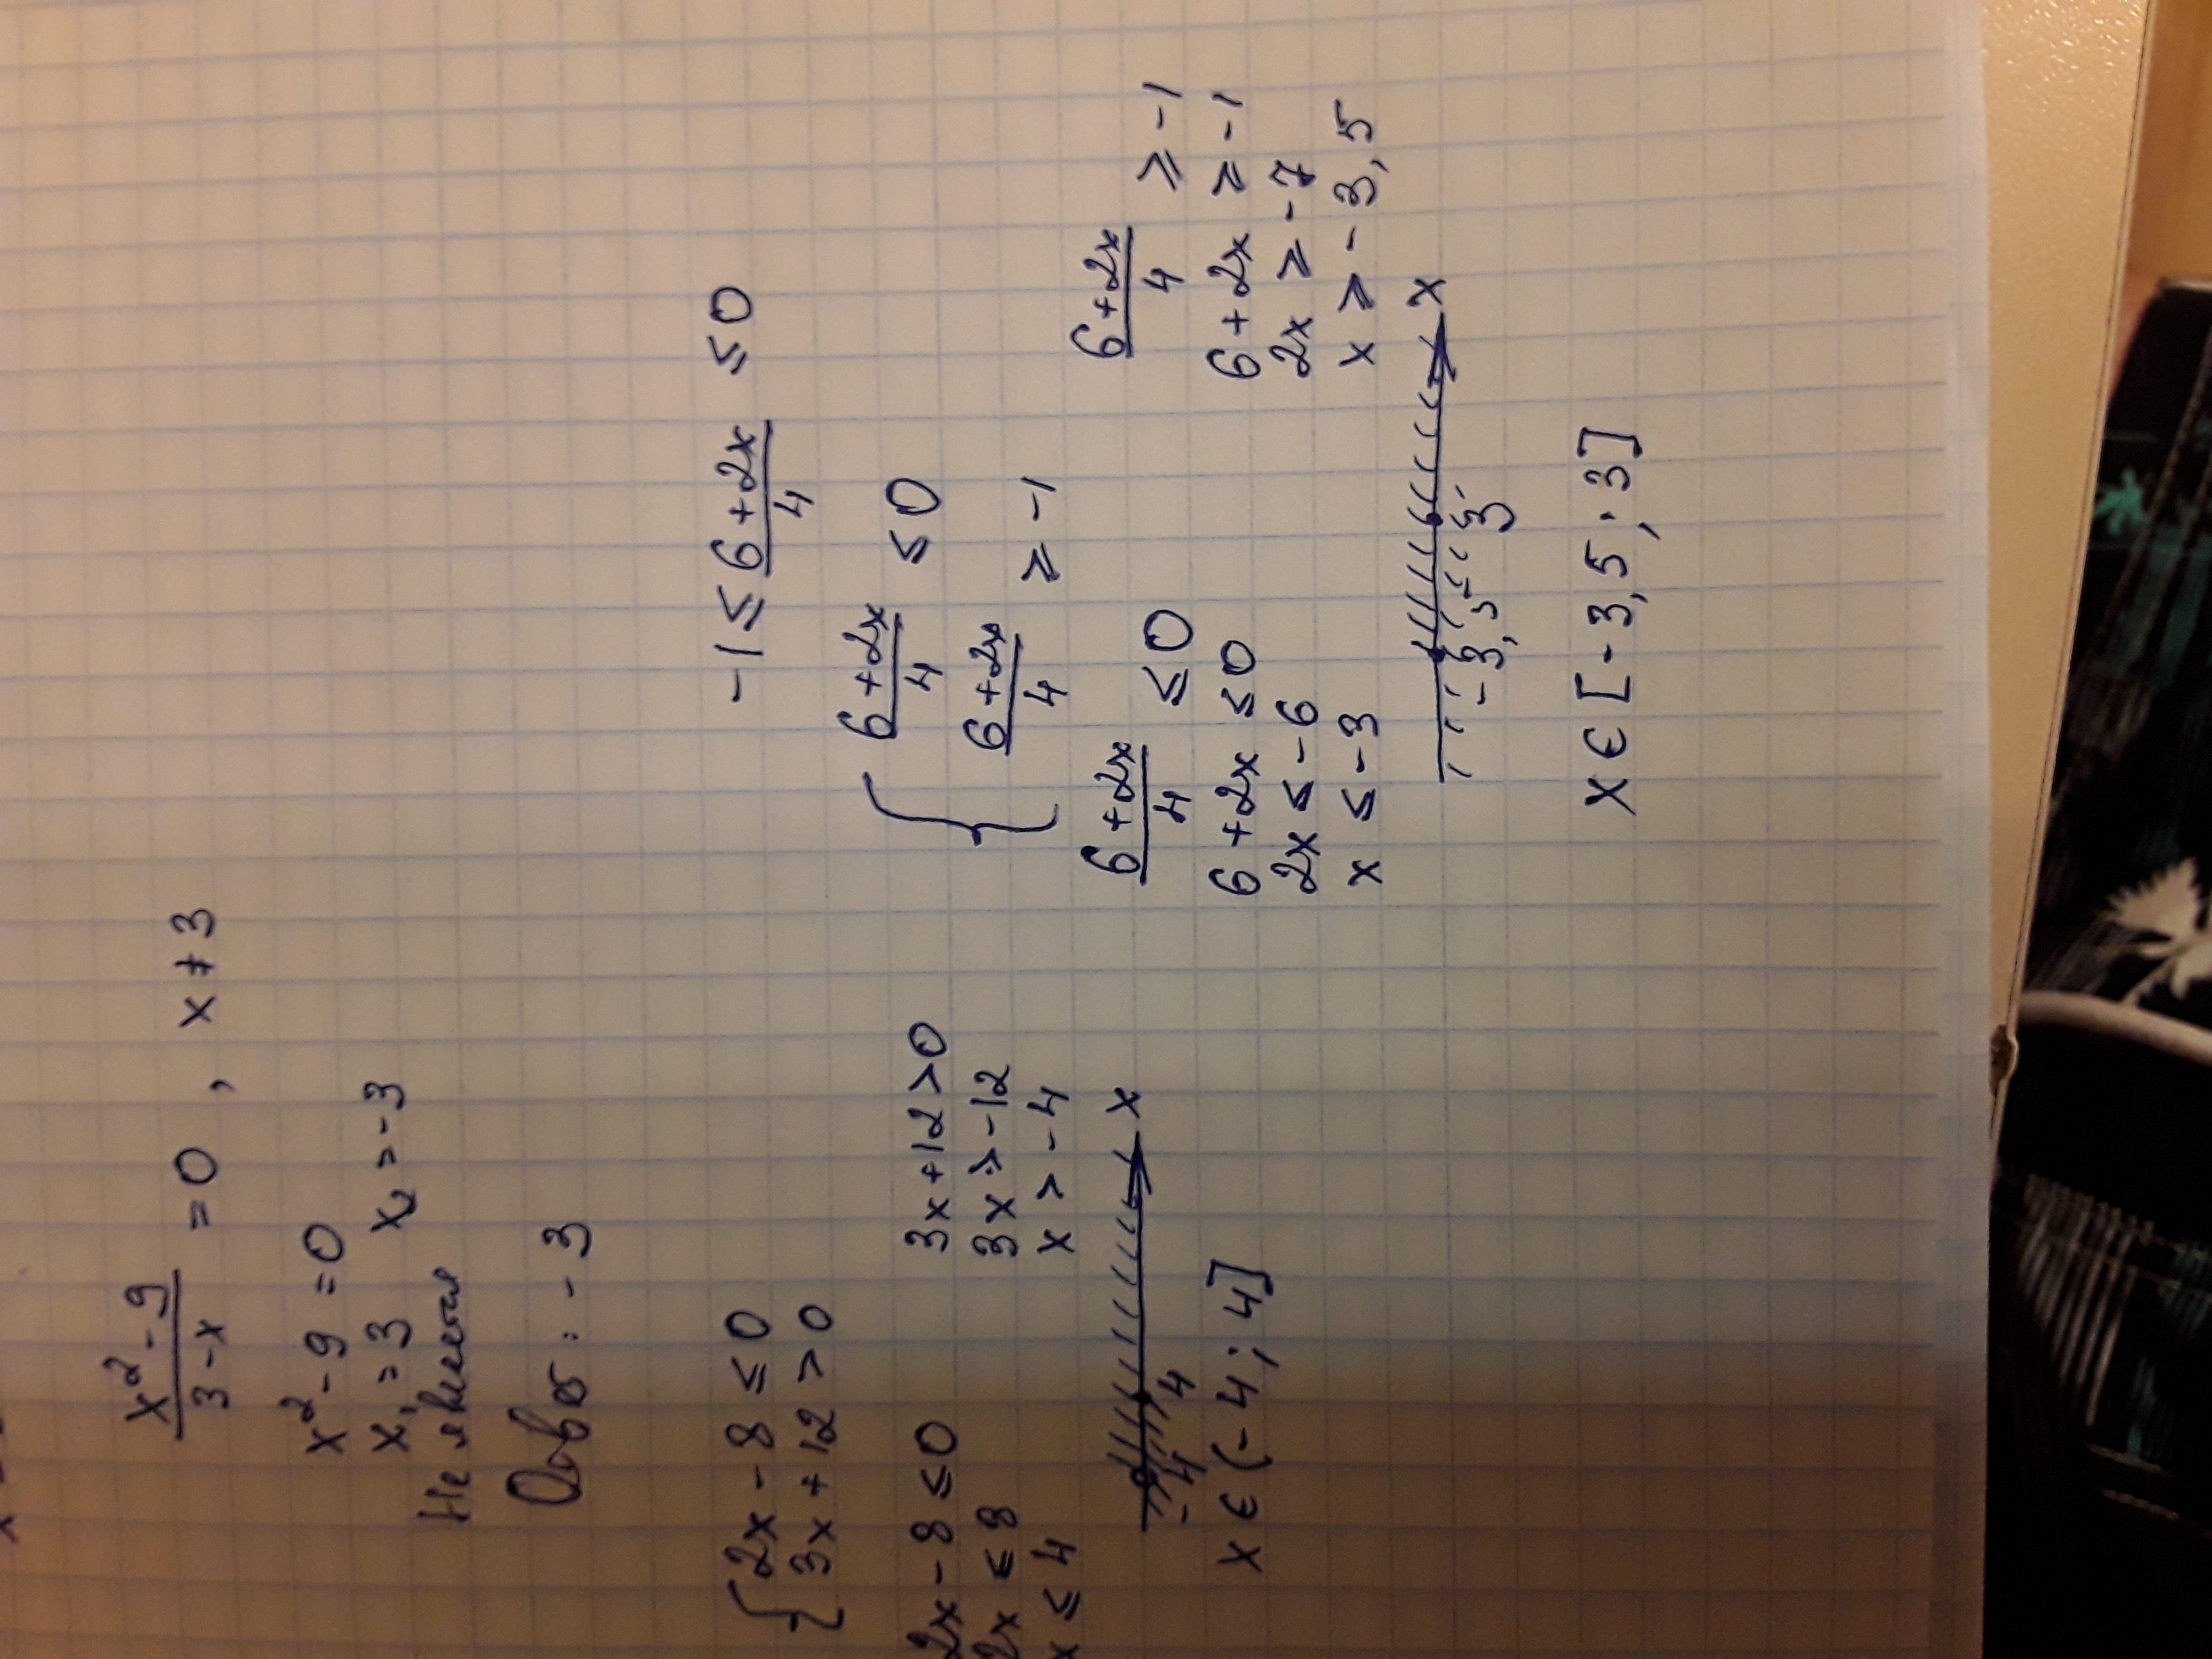 x² - 9 / 3 - x = 0 , x ≠ 3
x² - 9 = 0
x₁ = 3 x₂ = -3
Не является
Ответ: -3
{ 2x - 8 ≤ 0
3x + 12 > 0
2x - 8 ≤ 0 3x + 12 > 0
2x ≤ 8 3x > -12
x ≤ 4 x > -4
x
-4 4
x ∈ (-4; 4]
-1 ≤ 6 + 2x / 4 ≤ 0
{ 6 + 2x / 4 ≤ 0
6 + 2x / 4 ≥ -1
6 + 2x / 4 ≤ 0 6 + 2x / 4 ≥ -1
6 + 2x ≤ 0 6 + 2x ≥ -1
2x ≤ -6 2x ≥ -7
x ≤ -3 x ≥ -3,5
x
-3,5 3
x ∈ [-3,5 ; 3]